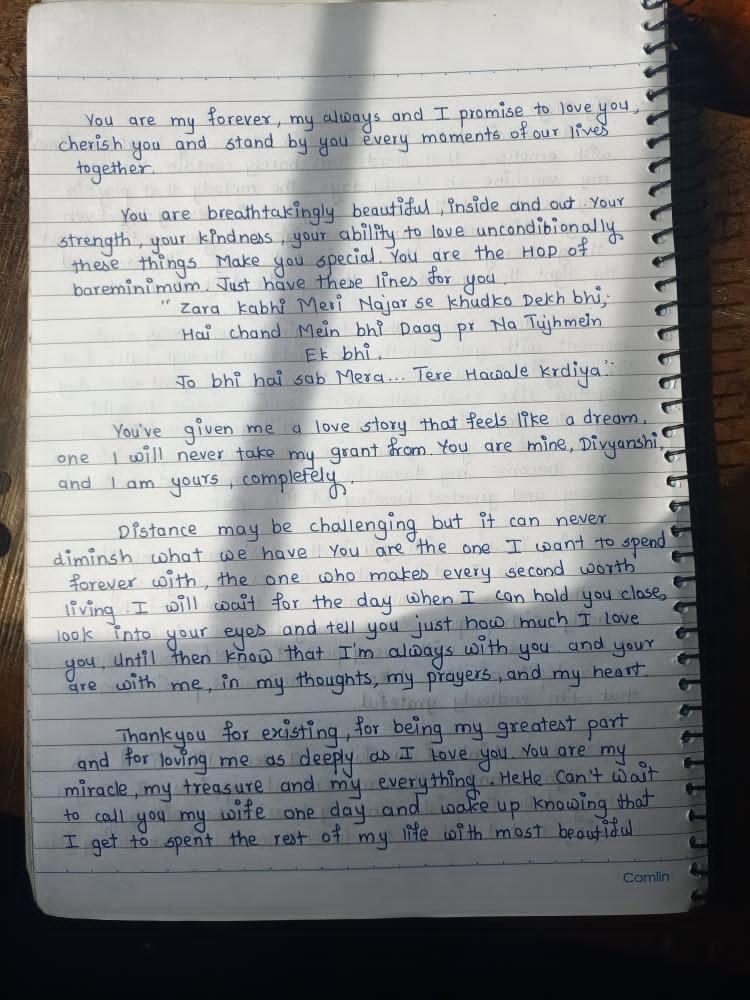 You are my forever, my always and I promise to love you,
cherish you and stand by you every moments of our lives
together.
You are breathtakingly beautiful, inside and out. Your
strength, your kindness, your ability to love unconditionally
these things Make you special. You are the HOD of
bareminimum. Just have these lines for you.
" Zara kabhi Meri Najar se khudko Dekh bhi,
Hai chand Mein bhi Daag pr Na Tujhmein
Ek bhi.
Jo bhi hai sab Mera... Tere Hawale Krdiya"
You've given me a love story that feels like a dream.
one I will never take my grant from. You are mine, Divyanshi,
and I am yours, completely.
Distance may be challenging but it can never
diminsh what we have You are the one I want to spend
forever with, the one who makes every second worth
living I will wait for the day when I can hold you close,
look into your eyes and tell you just how much I love
you. Until then know that I'm always with you and your
are with me, in my thoughts, my prayers, and my heart.
Thankyou for existing, for being my greatest part
and for loving me as deeply as I love you. You are my
miracle, my treasure and my everything. HeHe Can't wait
to call you my wife one day and wake up knowing that
I get to spent the rest of my life with most beautiful
Camlin